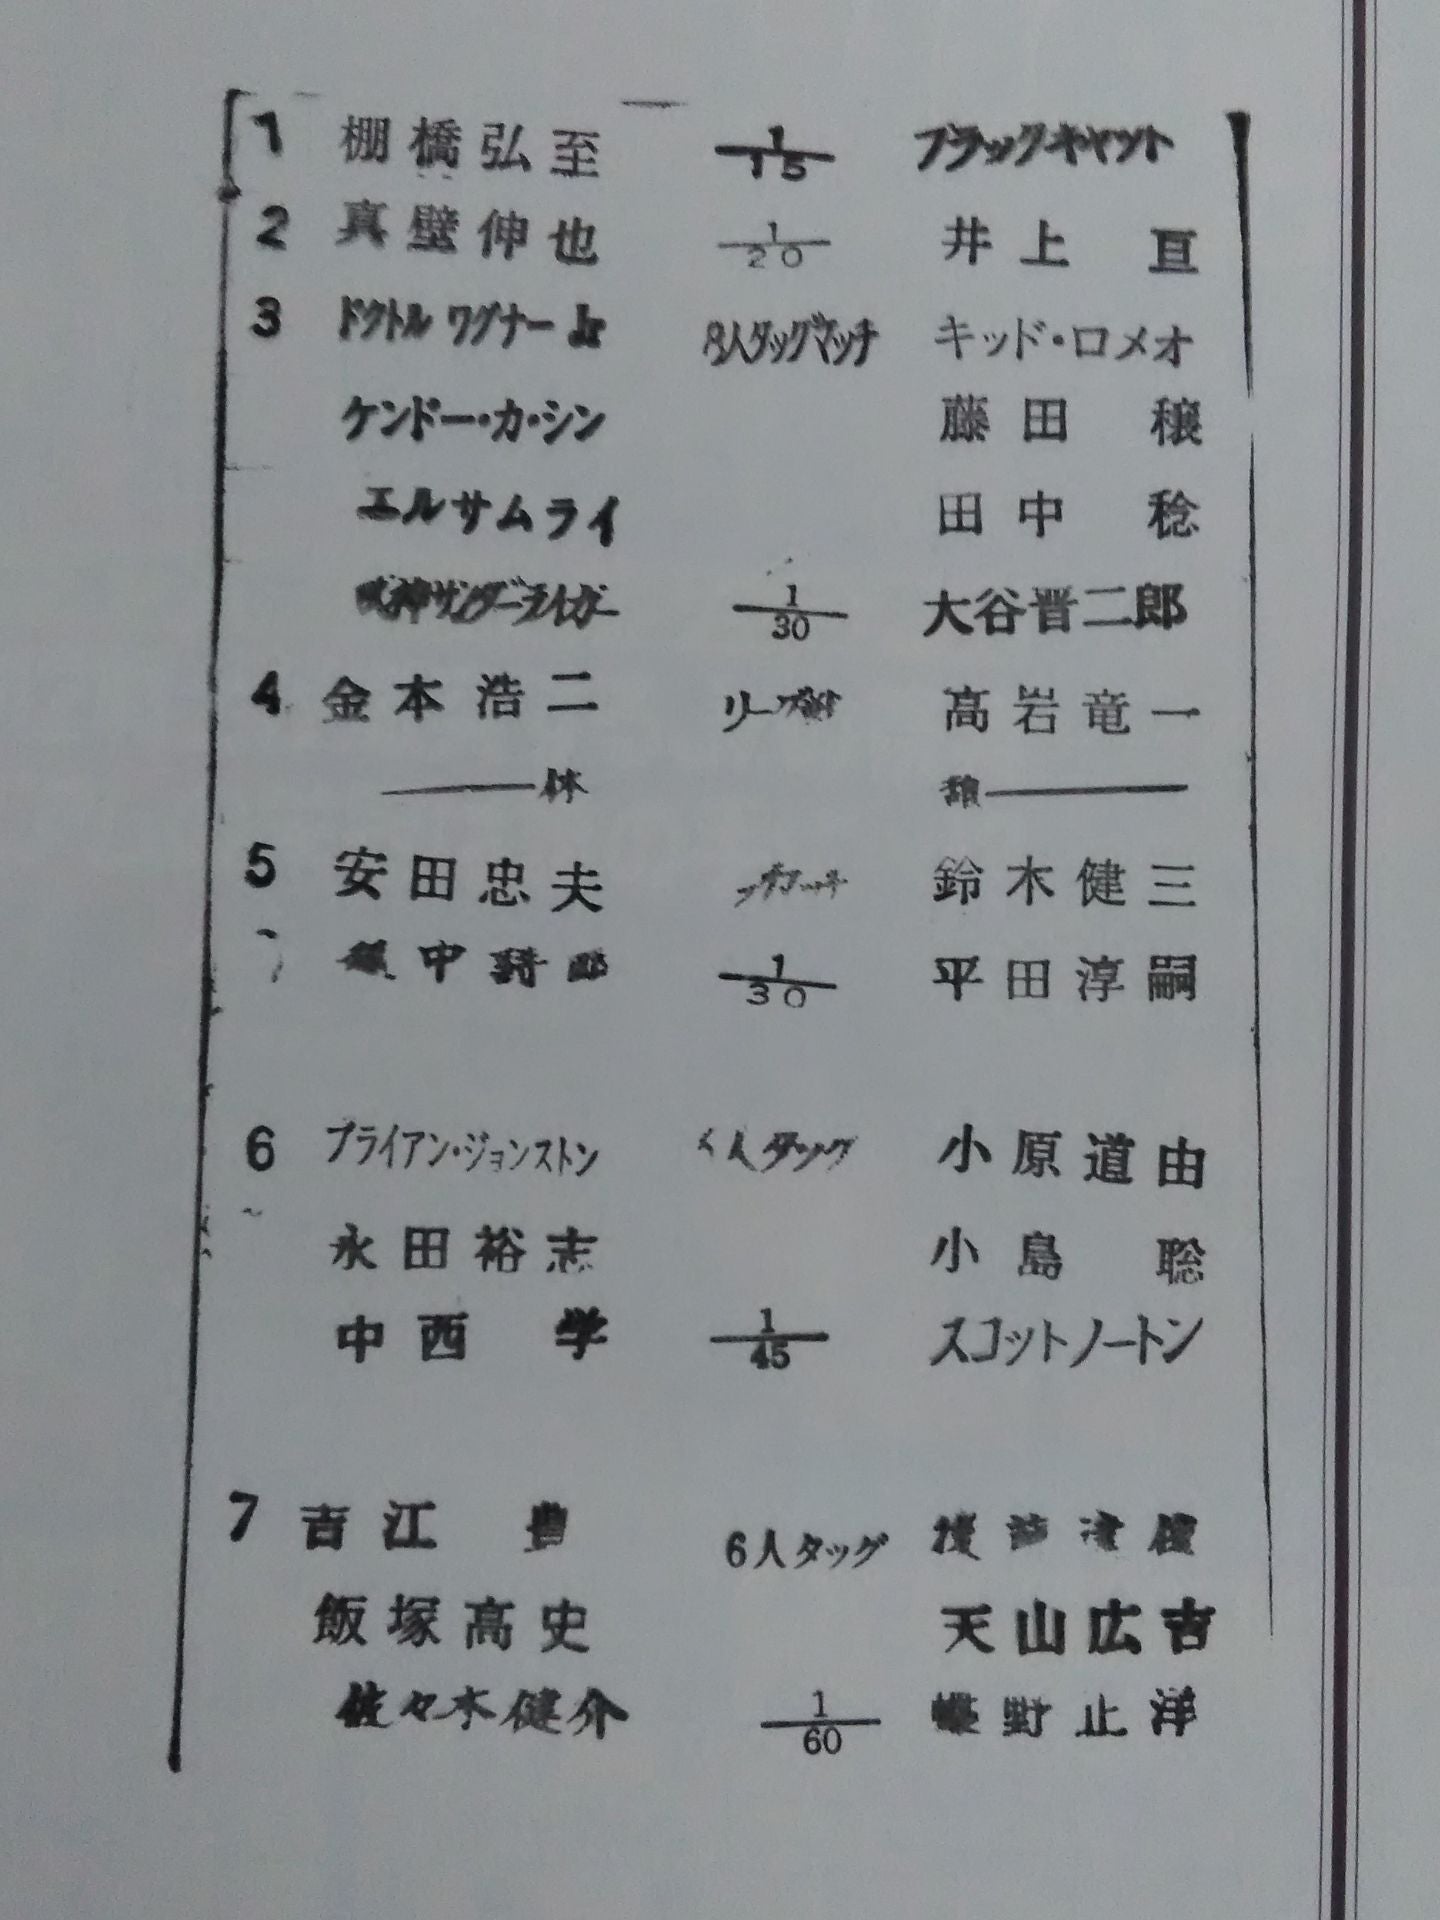 1 棚橋弘至 1/15 ブラックキャット
2 真壁伸也 1/20 井上亘
3 ドクトルワグナーJr 8人タッグマッチ キッド・ロメオ
ケンドー・カ・シン 藤田穣
エルサムライ 田中稔
獣神サンダーライガー 1/30 大谷晋二郎
4 金本浩二 高岩竜一
休 憩
5 安田忠夫 鈴木健三
中 郎 1/30 平田淳嗣
6 ブライアン・ジョンストン 人タッグ 小原道由
永田裕志 小島聡
中西学 1/45 スコットノートン
7 吉江豊 6人タッグ
飯塚高史 天山広吉
佐々木健介 1/60 蝶野正洋